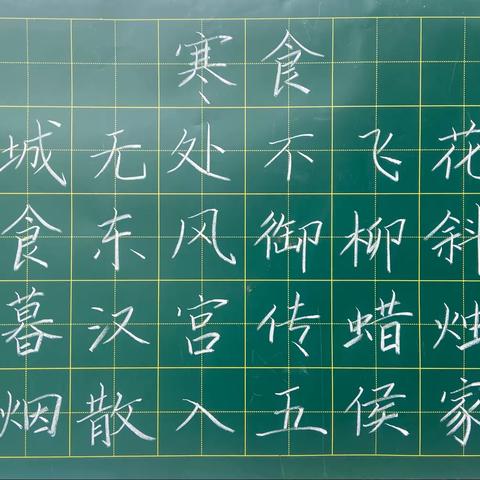 寒食
城无处不飞花
食东风御柳斜
暮汉宫传蜡烛
烟散入五侯家